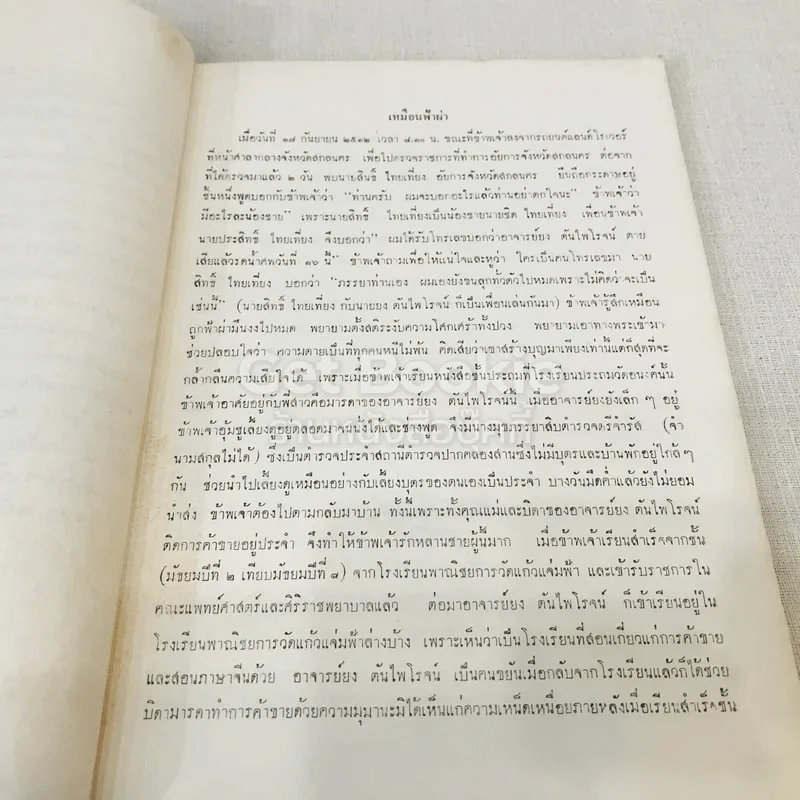 เหมือนฟ้าผ่า
เมื่อวันที่ ๑๗ กันยายน ๒๕๑๒ เวลา ๘.๓๐ น. ขณะที่ข้าพเจ้าลงจากรถยนต์แลนด์โรเวอร์
ที่หน้าศาลากลางจังหวัดสกลนคร เพื่อไปตรวจราชการที่ทำการอัยการจังหวัดสกลนคร ต่อจาก
ที่ได้ตรวจมาแล้ว ๒ วัน พบนายสิทธิ์ ไทยเที่ยง อัยการจังหวัดสกลนคร ยืนถือกระดาษอยู่
ชั้นหนึ่งพูดบอกกับข้าพเจ้าว่า "ท่านครับ ผมจะบอกอะไรแล้วท่านอย่าตกใจนะ" ข้าพเจ้าว่า
มีอะไรล่ะน้องชาย" เพราะนายสิทธิ์ ไทยเที่ยงเป็นน้องชายนายชิต ไทยเที่ยง เพื่อนข้าพเจ้า
นายประสิทธิ์ ไทยเที่ยง จึงบอกว่า" ผมได้รับโทรเลขบอกว่าอาจารย์ยง ตันไพโรจน์ ตาย
เสียแล้วรดน้ำศพวันที่ ๑๖ นี้" ข้าพเจ้าถามเพื่อให้แน่ใจและหูว่า ใครเป็นคนโทรเลขมา นาย
สิทธิ์ ไทยเที่ยง บอกว่า "ภรรยาท่านเอง ผมเองยังขนลุกทั้งตัวไปหมดเพราะไม่คิดว่าจะเป็น
เช่นนี้" (นายสิทธิ์ ไทยเที่ยง กับนายยง ตันไพโรจน์ ก็เป็นเพื่อนเล่นกันมา) ข้าพเจ้ารู้สึกเหมือน
ถูกฟ้าผ่ามึนงงไปหมด พยายามตั้งสติระงับความโศกเศร้าทั้งปวง พยายามเอาทางพระเข้ามา
ช่วยปลอบใจว่า ความตายเป็นที่ทุกคนหนีไม่พ้น คิดเสียว่าเขาสร้างบุญมาเพียงเท่านี้แต่ก็สุดที่จะ
กล้ำกลืนความเสียใจได้ เพราะเมื่อข้าพเจ้าเรียนหนังสือชั้นประถมที่โรงเรียนประถมวัดอนงค์นั้น
ข้าพเจ้าอาศัยอยู่กับพี่สาวคือมารดาของอาจารย์ยง ตันไพโรจน์นี้ เมื่ออาจารย์ยงยังเล็ก ๆ อยู่
ข้าพเจ้าอุ้มชูเลี้ยงดูอยู่ตลอดมาจนนั่งได้และช่างพูด จึงมีนางมุขภรรยาสิบตำรวจตรีจำรัส (จำ
นามสกุลไม่ได้) ซึ่งเป็นตำรวจประจำสถานีตำรวจปากคลองสานซึ่งไม่มีบุตรและบ้านพักอยู่ใกล้ๆ
กัน ช่วยนำไปเลี้ยงดูเหมือนอย่างกับเลี้ยงบุตรของตนเองเป็นประจำ บางวันมืดค่ำแล้วยังไม่ยอม
นำส่ง ข้าพเจ้าต้องไปตามกลับมาบ้าน ทั้งนี้เพราะทั้งคุณแม่และบิดาของอาจารย์ยง ตันไพโรจน์
ติดการค้าขายอยู่ประจำ จึงทำให้ข้าพเจ้ารักหลานชายผู้นี้มาก เมื่อข้าพเจ้าเรียนสำเร็จจากชั้น
(มัธยมปีที่ ๒ เทียบมัธยมปีที่ ๗) จากโรงเรียนพาณิชยการวัดแก้วแจ่มฟ้า และเข้ารับราชการใน
คณะแพทย์ศาสตร์และศิริราชพยาบาลแล้ว ต่อมาอาจารย์ยง ตันไพโรจน์ ก็เข้าเรียนอยู่ใน
โรงเรียนพาณิชยการวัดแก้วแจ่มฟ้าล่างบ้าง เพราะเห็นว่าเป็นโรงเรียนที่สอนเกี่ยวแก่การค้าขาย
และสอนภาษาจีนด้วย อาจารย์ยง ตันไพโรจน์ เป็นคนขยันเมื่อกลับจากโรงเรียนแล้วก็ได้ช่วย
บิดามารดาทำการค้าขายด้วยความมุมานะมิได้เห็นแก่ความเหน็ดเหนื่อยภายหลังเมื่อเรียนสำเร็จชั้น